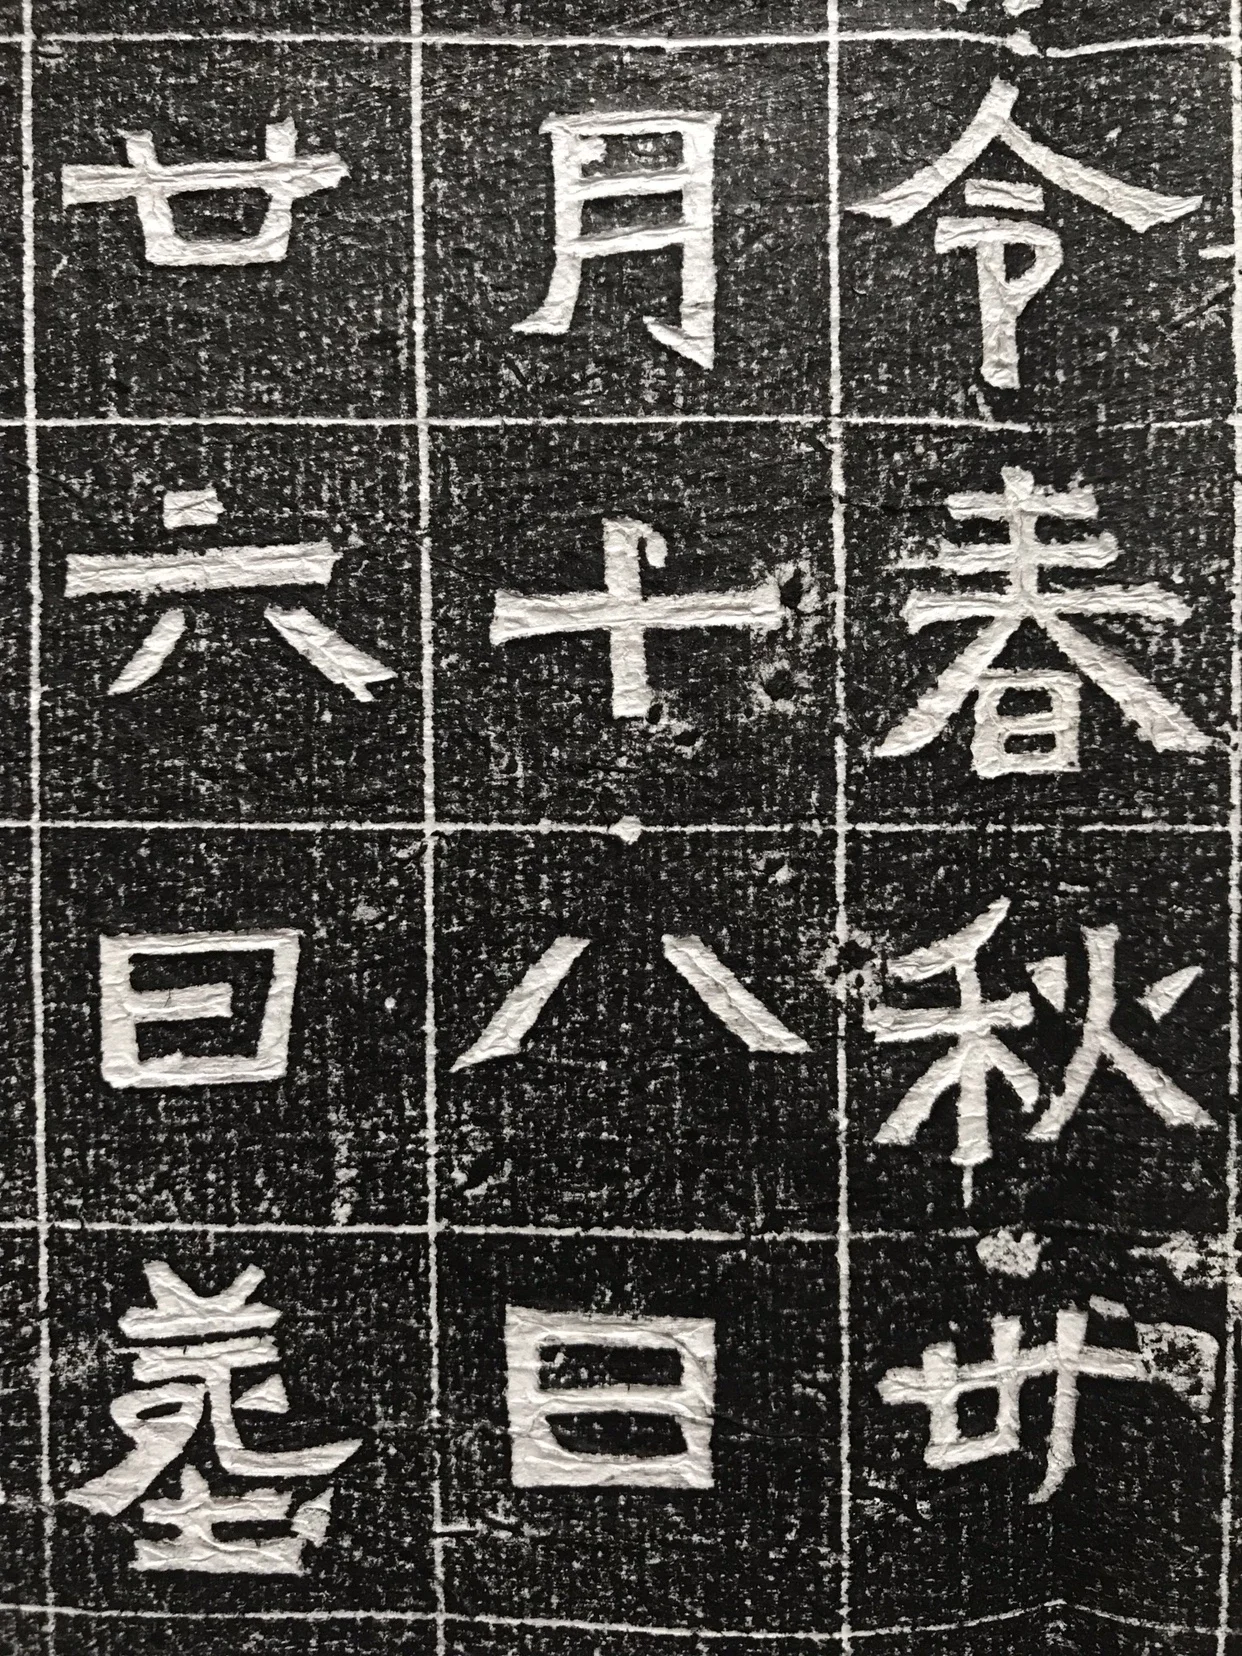 令春秋卅
月十八日
廿六日塟